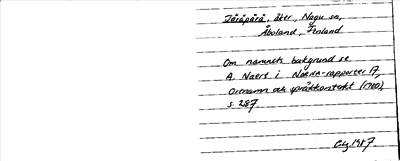 Järäpärä, åker, Nagu sn,
Åboland, Finland
Om namnets bakgrund se
A. Naert i NORNA-rapporter 17,
Ortnamn och språkkontakt (1980),
s. 287.
1987.